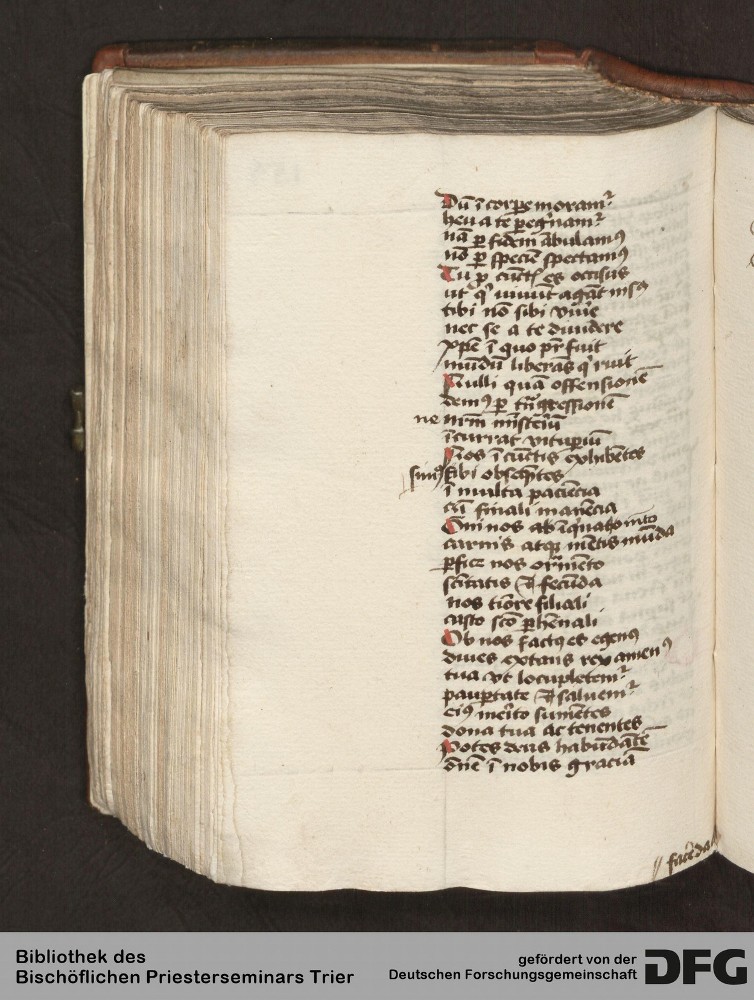 Dū ī corpe moram᷑
heu a te peg̃nam᷑
nā p fidem ābulamꝰ
nō p speciē spectamꝰ
Tu p cūctꝭ es occisus
ut qͥ uiuūt agāt
tibi nō sibi viue
nec se a te diuidere
xpē ī quo pr̄ fuit
mūdū liberās qͥ ruit
Nulli quā offensionē
demꝰ p tn̄sgressionē
ne nr̄m mīsteiū
īcurrat vitupiū
Nos ī cūctis exhibētes
simꝰ tibi obseq̄ntes
ī multa paciēcia
cū finali manēcia
Om̄i nos ab īquīato
carnis atqꝫ mētis mūda
pfice nos ornmēto
scītatis ⁊ fecūda
nos tīore filiali
casto scō phēnali
Ob nos factꝰ es egenꝰ
diues extans rex amenꝰ
tua vt locupletem᷑
paupertate ⁊ saluem᷑
eiꝰ meīto sumētes
dona tua ac tenentes
Potes deus habūdātē
dn̄e ī nobis graciā
facēda
Bibliothek des
Bischöflichen Priesterseminars Trier
gefördert von der
Deutschen Forschungsgemeinschaft
DFG